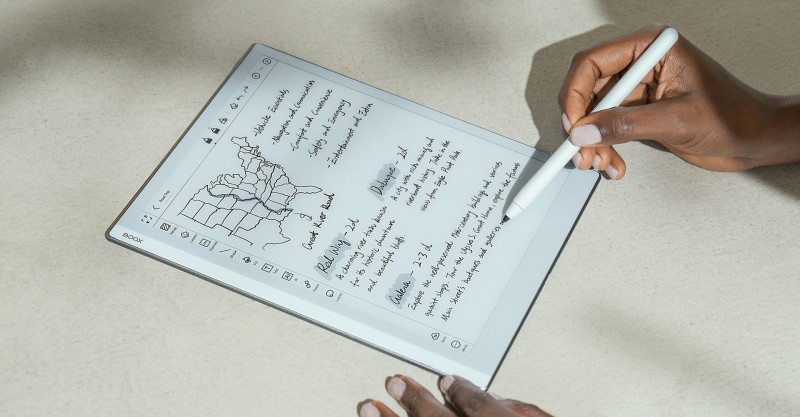 BOOX
Road Trip
-Vehicle Essentials
-Navigation and Communication
-Comfort and Convenience
-Safety and Emergency
-Entertainment and Extra
Great River Road
Red Wing - 2d
A charming river town known
for its historic downtown
and beautiful bluffs
Dubuque - 2d
A city with rich mining and
riverboat history. Take in the
views from Eagle Point Park.
Galena - 2-3 d
Explore the well-preserved 19th-century buildings and various
quaint shops. Tour the Ulysses S. Grant Home, explore the famous
Main Street's boutiques and galleries